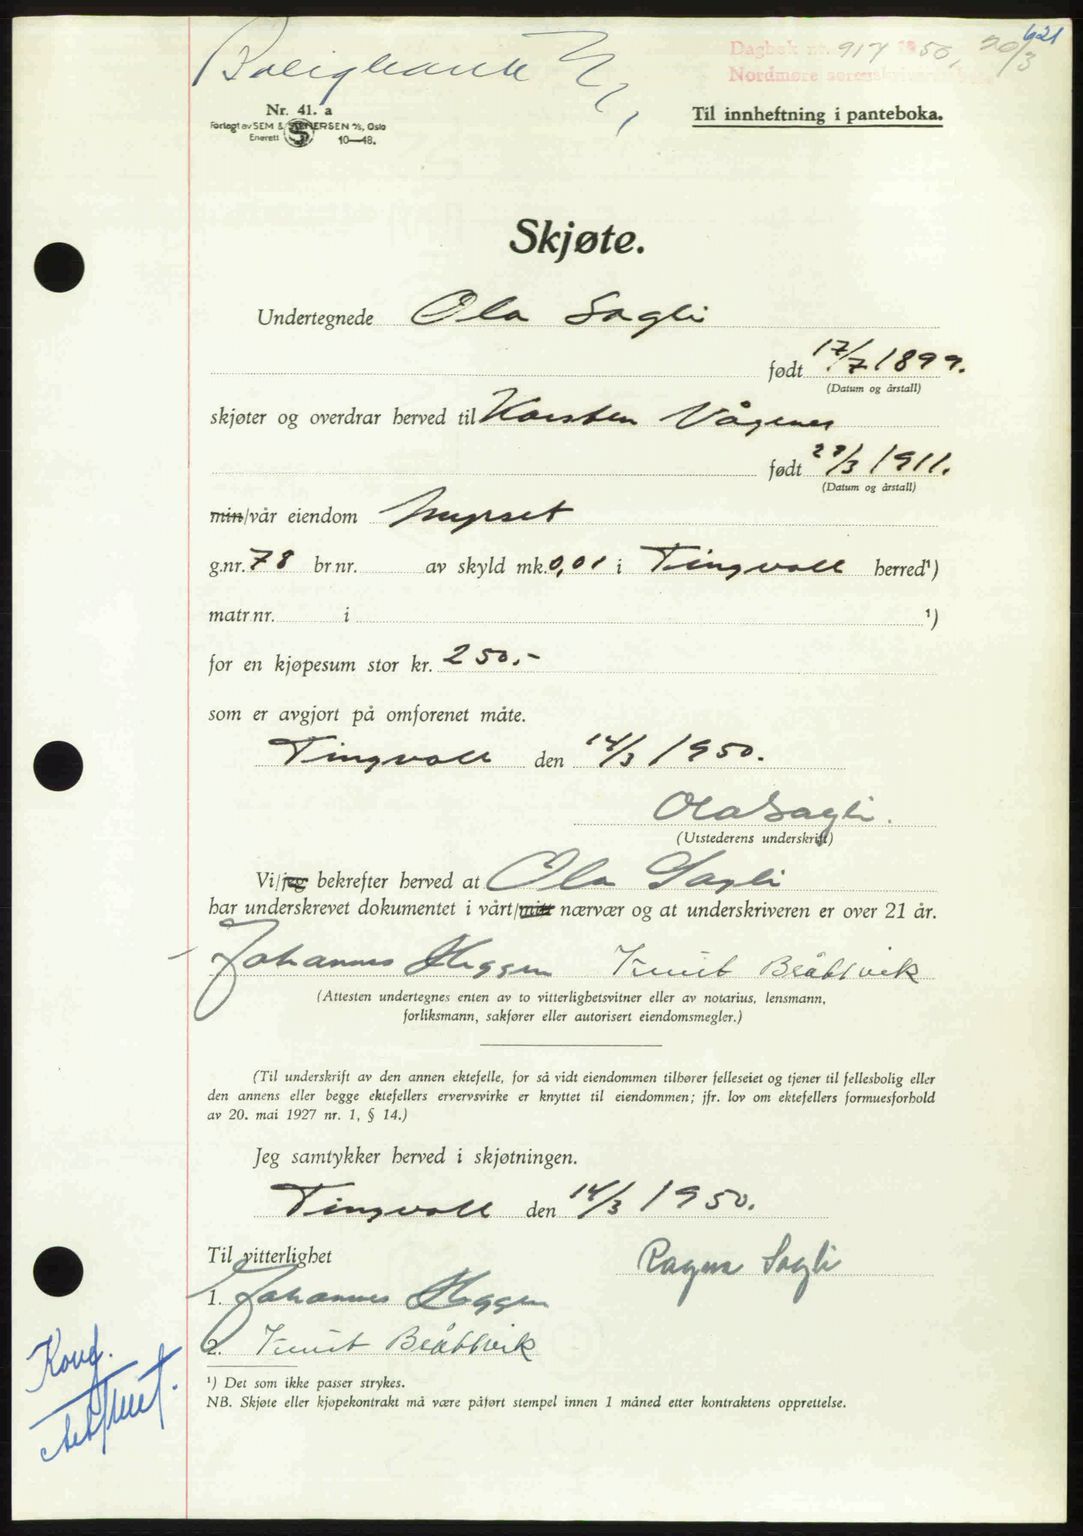 621
Dagbok nr. 917 1950, 20/3
Nordmøre sorenskriverembete
Nr. 41. a
Forlagt av SEM & STENERSEN A/S, Oslo
Enerett 10—48.
Til innheftning i panteboka.
Skjøte.
Undertegnede Ola Sagli
født 17/7 1899.
(Datum og årstall)
skjøter og overdrar herved til Karsten Vågenes
født 29/3 1911.
(Datum og årstall)
min/vår eiendom Myrset
g.nr. 78 br nr. av skyld mk. 0,01 i Tingvoll herred¹)
matr nr. i ¹)
for en kjøpesum stor kr. 250.-
som er avgjort på omforenet måte.
Tingvoll den 14/3 1950.
Ola Sagli.
(Utstederens underskrift)
Vi/jeg bekrefter herved at Ola Sagli
har underskrevet dokumentet i vårt/mitt nærvær og at underskriveren er over 21 år.
Johannes Heggem Knut Bråttvik
(Attesten undertegnes enten av to vitterlighetsvitner eller av notarius, lensmann,
forliksmann, sakfører eller autorisert eiendomsmegler.)
(Til underskrift av den annen ektefelle, for så vidt eiendommen tilhører felleseiet og tjener til fellesbolig eller
den annens eller begge ektefellers ervervsvirke er knyttet til eiendommen; jfr. lov om ektefellers formuesforhold
av 20. mai 1927 nr. 1, § 14.)
Jeg samtykker herved i skjøtningen.
Tingvoll den 14/3 1950.
Til vitterlighet
Ragna Sagli
1. Johannes Heggem
2. Knut Bråttvik
¹) Det som ikke passer strykes.
NB. Skjøte eller kjøpekontrakt må være påført stempel innen 1 måned etter kontraktens opprettelse.